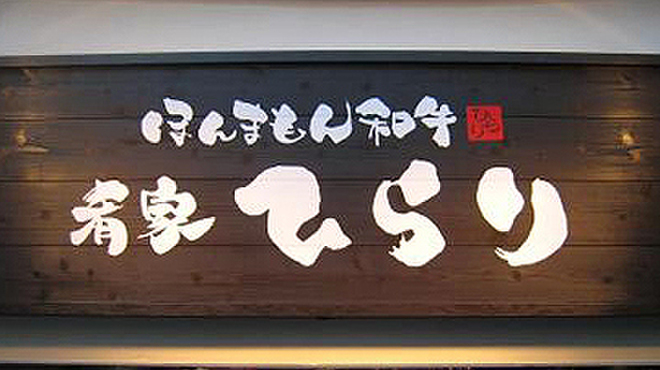 ほんまもん和牛
ひらり
肴家ひらり